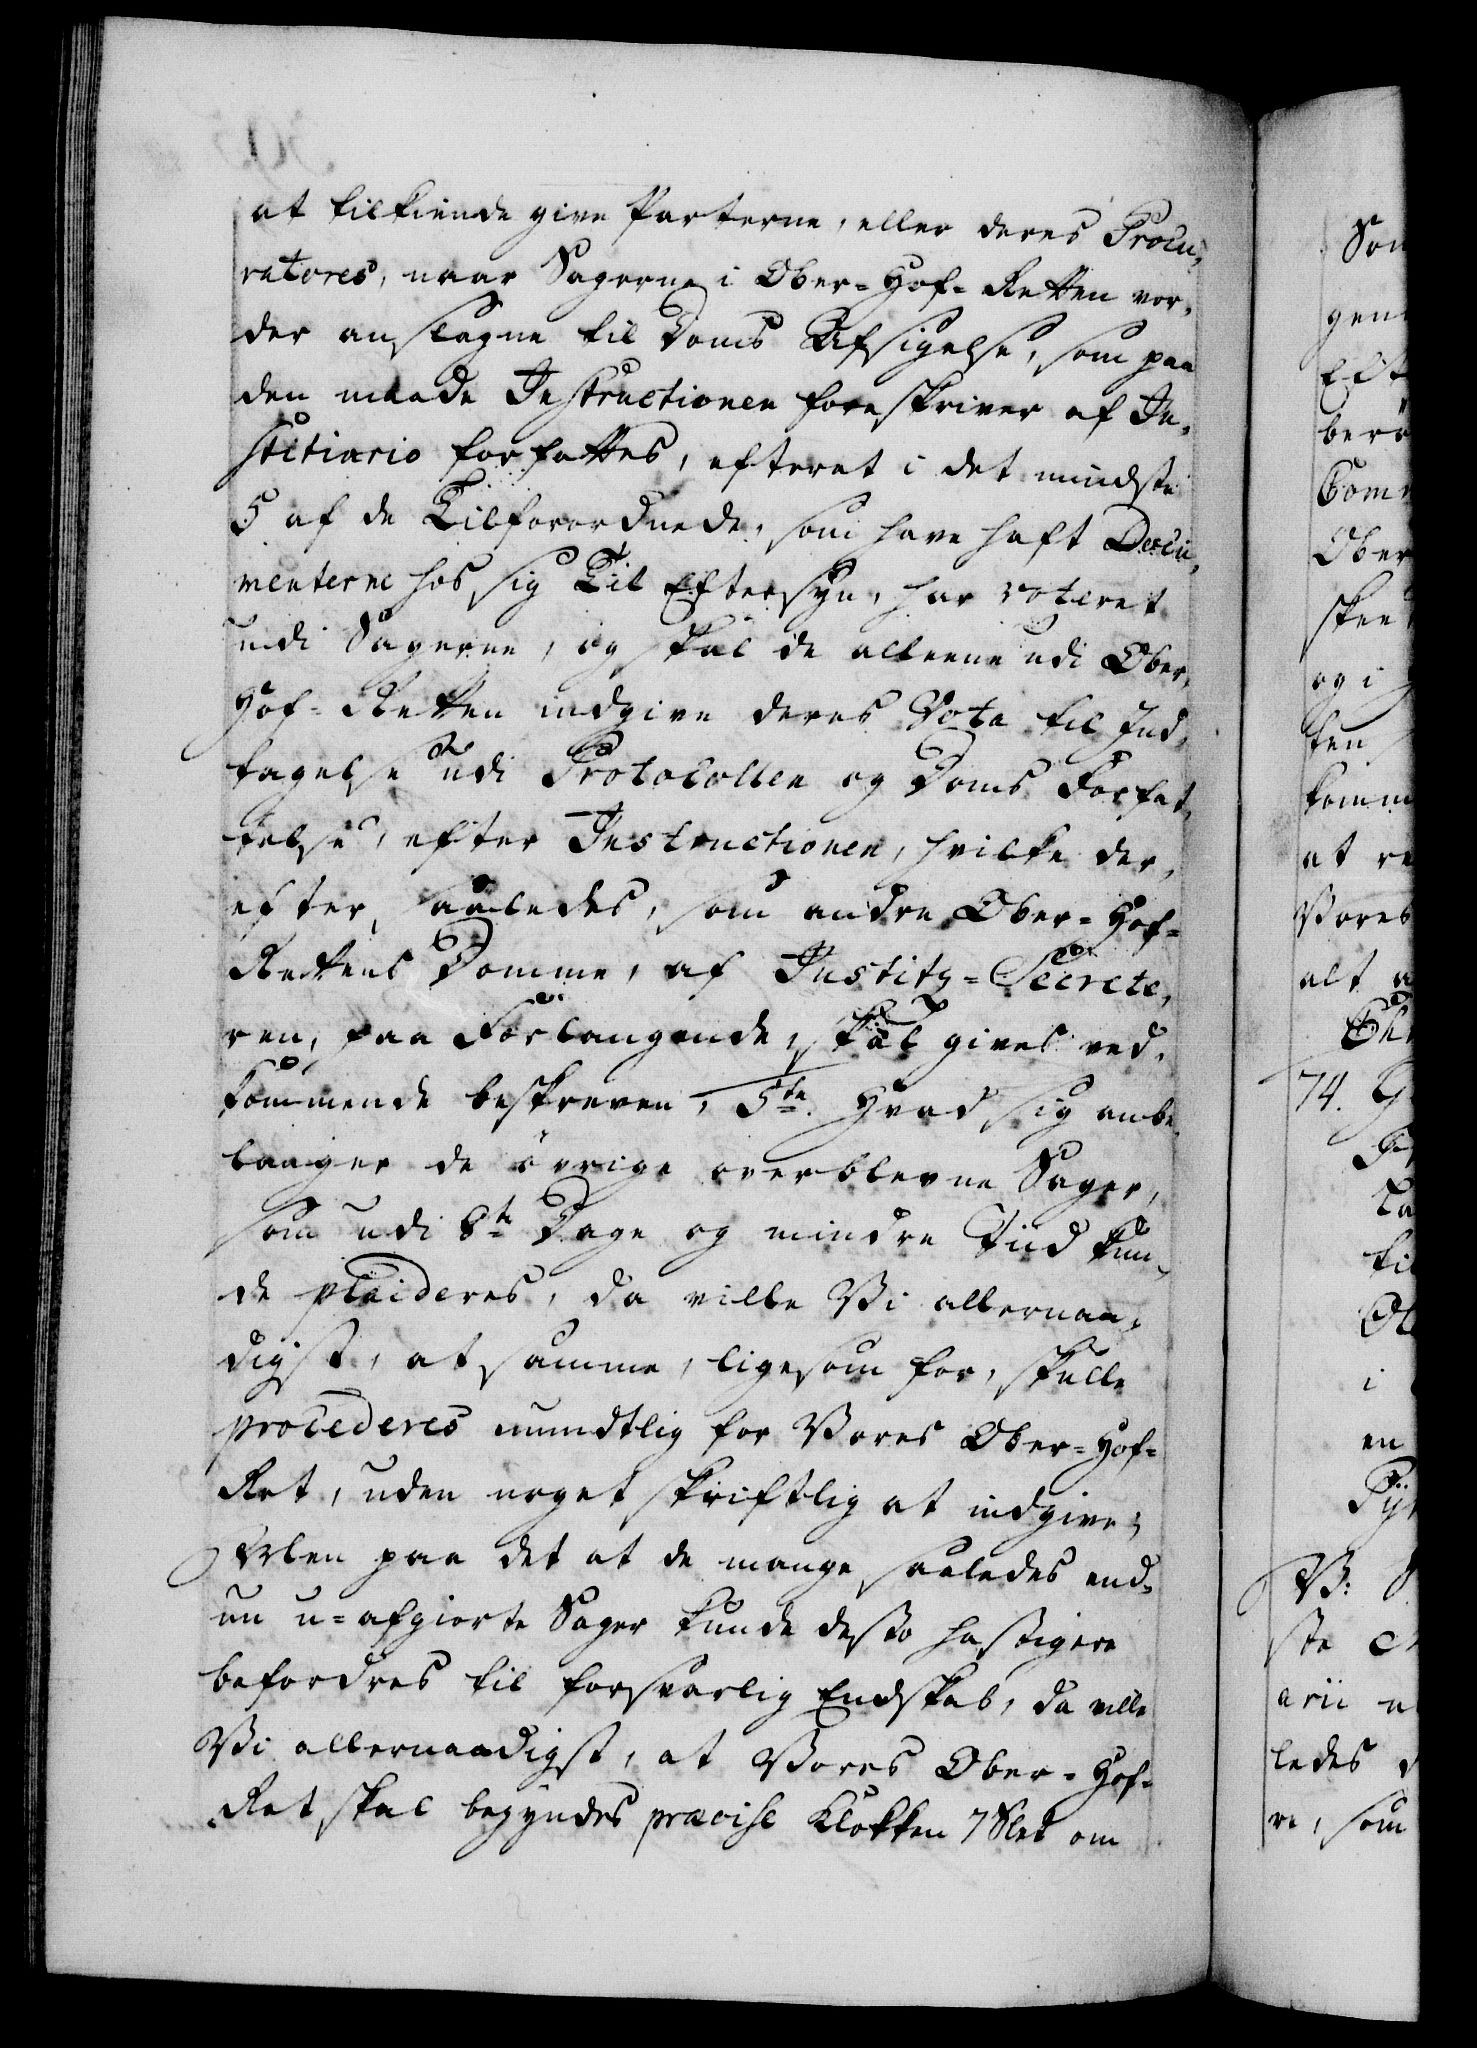 at tilkiende give Parterne, eller deres Procu-
ratores, naar Sagerne i Ober-Hof-Retten vor-
der anslagne til Doms Afsigelse, som paa
den maade Instructionen foreskriver af Ju-
stitiario forfattes, efterat i det mindste
5 af de Tilforordnede, som have haft Docu-
menterne hos sig Til Eftersyn, har voteret
udi Sagerne, og skal de alleene udi Ober-
Hof-Retten indgive deres Vota til Ind-
tagelse udi Protocollen og Doms Forfat-
telse, efter Instructionen, hvilke der-
efter, saaledes, som andre Ober-Hof-
Rettens Domme, af Justitz-Secrete-
ren, paa Forlangende, skal gives ved-
kommende beskreven, 5te Hvad sig anbe-
langer de övrige overblevne Sager,
som udi 8te Dage og mindre Tiid kun-
de plaideres, da ville Vi allernaa-
digst, at samme, ligesom for, skulle
procederes mundtlig for Vores Ober-Hof-
Ret, uden noget skriftlig at indgive;
Mlen paa det at de mange saaledes end-
nu u-afgiorte Sager kunde desto hastigere
befordres til forsvarlig Endskab, da ville
Vi allernaadigst, at Vores Ober-Hof-
Ret skal begyndes præcise Klokken 7 Slet om
Som
gen
ber
Comm
Ober
skee
og i
ten
komm
at re
Vores
alt a
74.
til
i
en
V:
ste
arii
ledes
re, som